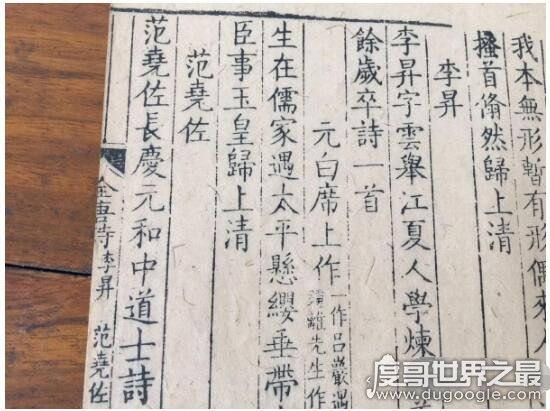 我本無形暫有形偶來人
搔首翛然歸上清
李昇
李昇字雲舉江夏人學煉
餘歲卒詩一首
元白席上作一作呂巖遇
先生作
生在儒家遇太平懸纓垂帶
臣事玉皇歸上清
范堯佐
范堯佐長慶元和中道士詩
全唐詩 李昇 范堯佐
度哥世界之最
www.dugoogle.com